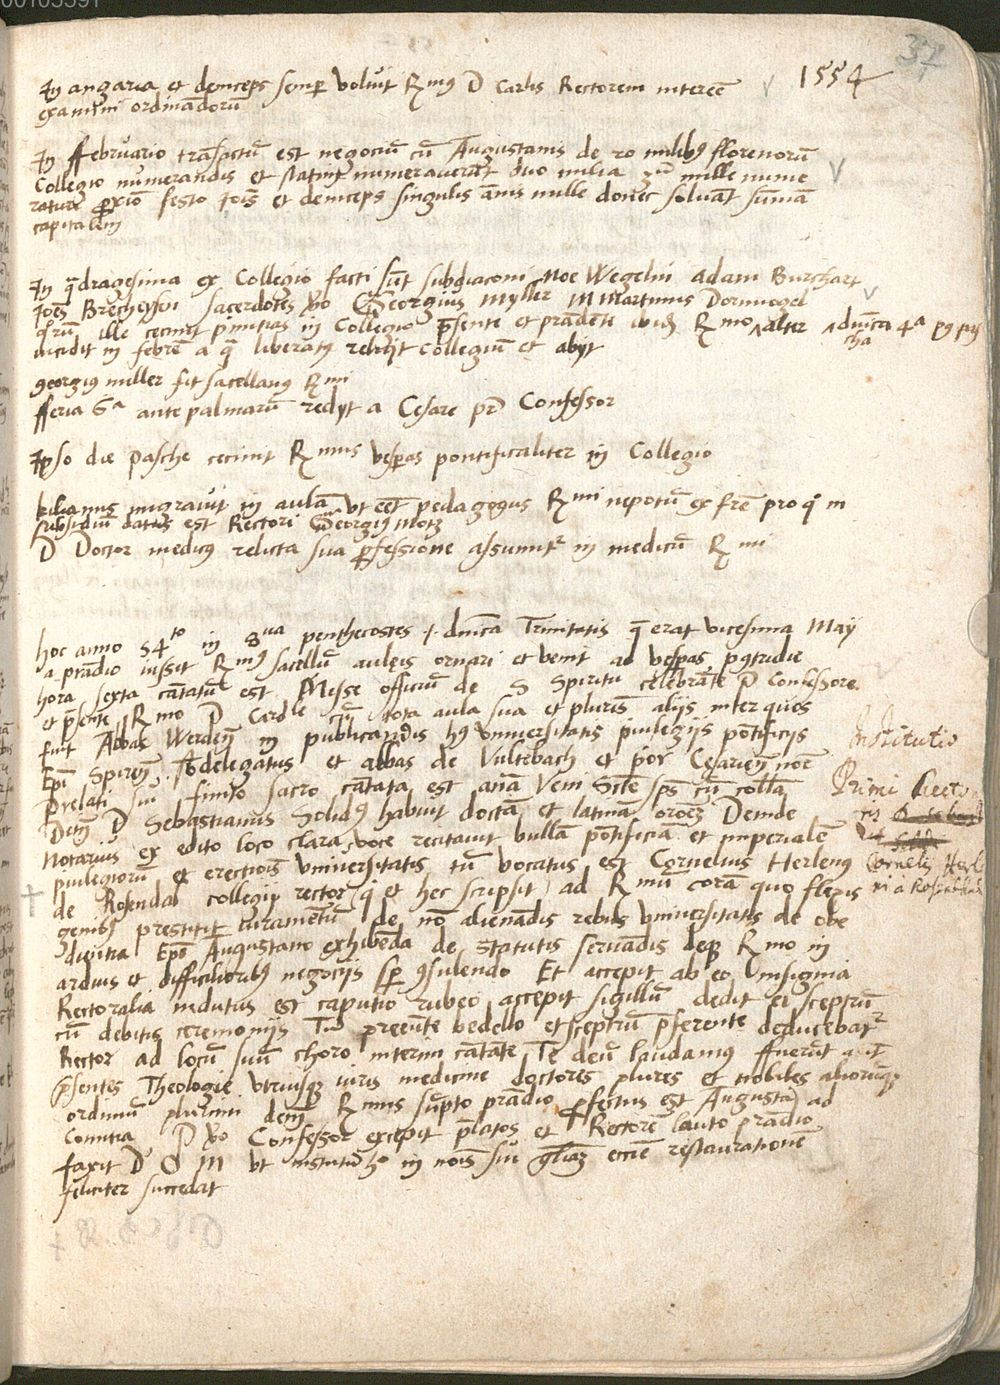 00105391
37
1554
In angaria et deinceps semp voluit Rmus D Carlis Rectorem interee
examini ordinadorū
In ffebruario trāsactū est negociū cū Augustanis de 20 milibꝰ florenorū
Collegio numerandis et statim numeraverūt duo milia mille nume
raturi ꝓxio festo Jois et deinceps singulis ānis mille donec solvāt sūmā
capitalem
In qdragesima ex Collegio facti sūt subdiaconi Noe Wegelin adam Burchart
Joēs Brecheysen sacerdotes vo Georgius Myller M Martinus Dornvogel
qrū ille cecinit pmitias in Collegio psente et prandēte ibidē Rmo ^alter ^dnica 4a pꝰ pas
cha
incidit in febrē a q liberatꝰ rediit collegiū et abyt
georgiꝰ miller fit sacellanꝰ Rmi
fferia 6a ante palmarū redyt a Cesare pr Confessor
Ipso die pasche cecinit Rmus vespas pontificaliter in Collegio
kilianus migravit in aulā ut eēt pedagogus Rmi nepotū ex fre pro q in
subsidiū datus est Rectori Georgiꝰ Motz
D Doctor medicꝰ relicta sua ꝓfessione assumit in medicū Rmi
hoc anno 54to in 8va penthecostes .i. dnica Trinitatis q erat vicesima Maij
a prādio iussit Rmꝰ sacellū auleis ornari et venit ad vespas pꝰtridie
hora sexta cātatū est Misse officiū de S Spiritu celebrāte D Confessore
et psente Rmo D Cardle cū tota aula sua et plures aliis inter quos
fuit Abbas Werdeñ in publicādis hꝰ universitatis pivilegiis pōtificiis
Epi Spireñ. subdelegatus et abbas de Vultebach et pōr Cesariēn noē
Prelati sui finito sacro cātata est anā Veni Scte sps cū collā
Ditꝫ D Sebastianus Solidꝰ habuit doctā et latinā orōem Deinde
Notarius ex edito loco clara voce recitavit bullā pōtificiā et imperialē
pivilegiorū et erectiois universitatis tū vocatus est Cornelius Herlenꝰ
de Rosendal collegii rector (q et hec scripsit) ad Rmū corā quo flexis
genibꝰ prestitit iuramētū de nō alienādis rebus universitatis de obe
dientia Epo Augustano exhibēda de statutis servādis deqꝫ Rmo in
arduis et difficilioribꝰ negociis sp cōsulendo Et accepit ab eo Insignia
Rectoralia indutus est caputio rubeo accepit sigillū dedit ei sceptrū
cū debitis ceremoniis Tū preeūte bedello et sceptrū pferente deducebat
Rector ad locū suū choro interim cātāte Te deū laudamus ffuerūt
psentes Theologie utriusqꝫ iuris medicine doctores plures et nobiles aliorūqꝫ
ordinū plurimi deniꝫ Rmus sūpto prādio ꝓfectus est Augustā ad
Comitia D vo Confessor excepit platos et Rectorē lauto prādio
faxit D O M ut institutū h in nois sui gliā ecclē restauratione
feliciter succedat
Institutio
Primi Recto
ris
Cornelij Herl
ni a Rosendal